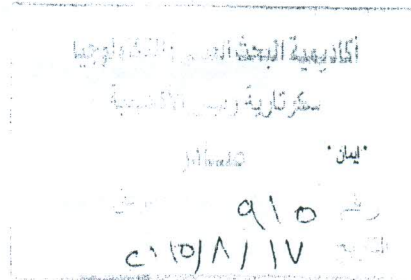 أكاديمية البحث العلمى والتكنولوجيا
سكرتارية رئيس الأكاديمية
"إيمان"
رقم ٩١٥
التاريخ ٢٠١٥/٨/١٧